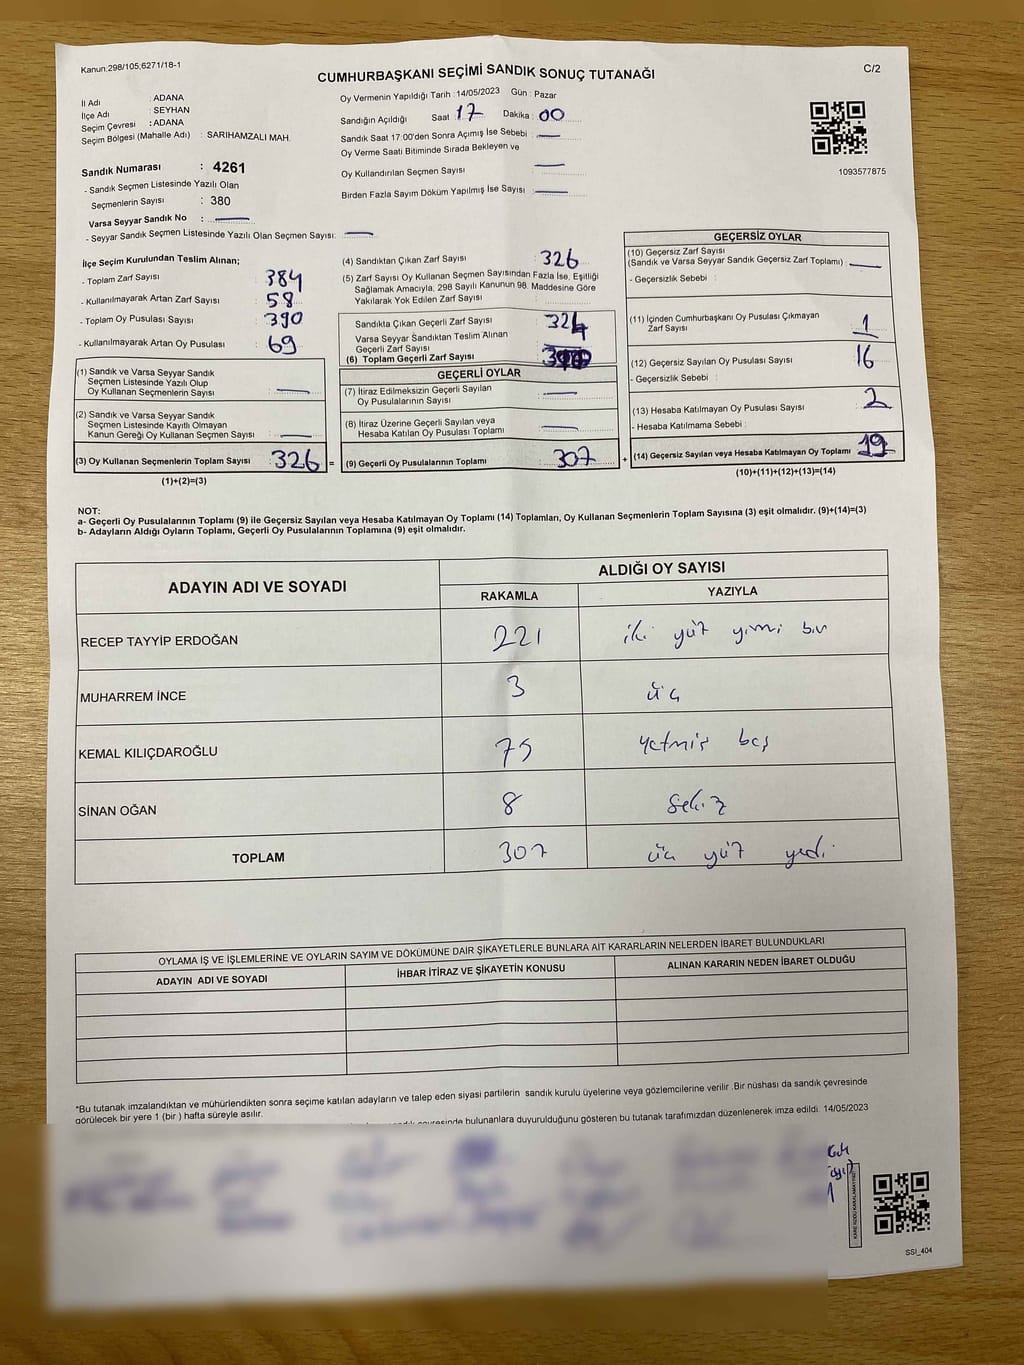 Kanun:298/105;6271/18-1
CUMHURBAŞKANI SEÇİMİ SANDIK SONUÇ TUTANAĞI
C/2
İl Adı : ADANA
İlçe Adı : SEYHAN
Seçim Çevresi : ADANA
Seçim Bölgesi (Mahalle Adı) : SARIHAMZALI MAH.
Sandık Numarası : 4261
- Sandık Seçmen Listesinde Yazılı Olan
Seçmenlerin Sayısı : 380
Varsa Seyyar Sandık No :
- Seyyar Sandık Seçmen Listesinde Yazılı Olan Seçmen Sayısı:
Oy Vermenin Yapıldığı Tarih : 14/05/2023 Gün : Pazar
Sandığın Açıldığı Saat 17 Dakika : 00
Sandık Saat 17:00'den Sonra Açımış İse Sebebi :
Oy Verme Saati Bitiminde Sırada Bekleyen ve
Oy Kullandırılan Seçmen Sayısı :
Birden Fazla Sayım Döküm Yapılmış İse Sayısı :
1093577875
İlçe Seçim Kurulundan Teslim Alınan;
- Toplam Zarf Sayısı : 384
- Kullanılmayarak Artan Zarf Sayısı : 58
- Toplam Oy Pusulası Sayısı : 390
- Kullanılmayarak Artan Oy Pusulası : 69
(1) Sandık ve Varsa Seyyar Sandık
Seçmen Listesinde Yazılı Olup
Oy Kullanan Seçmenlerin Sayısı :
(2) Sandık ve Varsa Seyyar Sandık
Seçmen Listesinde Kayıtlı Olmayan
Kanun Gereği Oy Kullanan Seçmen Sayısı :
(3) Oy Kullanan Seçmenlerin Toplam Sayısı : 326
(1)+(2)=(3)
(4) Sandıktan Çıkan Zarf Sayısı : 326
(5) Zarf Sayısı Oy Kullanan Seçmen Sayısından Fazla İse, Eşitliği
Sağlamak Amacıyla, 298 Sayılı Kanunun 98. Maddesine Göre
Yakılarak Yok Edilen Zarf Sayısı :
Sandıkta Çıkan Geçerli Zarf Sayısı : 324
Varsa Seyyar Sandıktan Teslim Alınan
Geçerli Zarf Sayısı :
(6) Toplam Geçerli Zarf Sayısı :
GEÇERLİ OYLAR
(7) İtiraz Edilmeksizin Geçerli Sayılan
Oy Pusulalarının Sayısı :
(8) İtiraz Üzerine Geçerli Sayılan veya
Hesaba Katılan Oy Pusulası Toplamı :
= (9) Geçerli Oy Pusulalarının Toplamı : 307
GEÇERSİZ OYLAR
(10) Geçersiz Zarf Sayısı
(Sandık ve Varsa Seyyar Sandık Geçersiz Zarf Toplamı) :
- Geçersizlik Sebebi :
(11) İçinden Cumhurbaşkanı Oy Pusulası Çıkmayan
Zarf Sayısı : 1
(12) Geçersiz Sayılan Oy Pusulası Sayısı : 16
- Geçersizlik Sebebi :
(13) Hesaba Katılmayan Oy Pusulası Sayısı : 2
- Hesaba Katılmama Sebebi :
+ (14) Geçersiz Sayılan veya Hesaba Katılmayan Oy Toplamı : 19
(10)+(11)+(12)+(13)=(14)
NOT:
a- Geçerli Oy Pusulalarının Toplamı (9) ile Geçersiz Sayılan veya Hesaba Katılmayan Oy Toplamı (14) Toplamları, Oy Kullanan Seçmenlerin Toplam Sayısına (3) eşit olmalıdır. (9)+(14)=(3)
b- Adayların Aldığı Oyların Toplamı, Geçerli Oy Pusulalarının Toplamına (9) eşit olmalıdır.
ADAYIN ADI VE SOYADI
ALDIĞI OY SAYISI
RAKAMLA YAZIYLA
RECEP TAYYİP ERDOĞAN 221 iki yüz yirmi bir
MUHARREM İNCE 3 üç
KEMAL KILIÇDAROĞLU 75 yetmiş beş
SİNAN OĞAN 8 Sekiz
TOPLAM 307 üç yüz yedi
OYLAMA İŞ VE İŞLEMLERİNE VE OYLARIN SAYIM VE DÖKÜMÜNE DAİR ŞİKAYETLERLE BUNLARA AİT KARARLARIN NELERDEN İBARET BULUNDUKLARI
ADAYIN ADI VE SOYADI İHBAR İTİRAZ VE ŞİKAYETİN KONUSU ALINAN KARARIN NEDEN İBARET OLDUĞU
*Bu tutanak imzalandıktan ve mühürlendikten sonra seçime katılan adayların ve talep eden siyasi partilerin sandık kurulu üyelerine veya gözlemcilerine verilir .Bir nüshası da sandık çevresinde
görülecek bir yere 1 (bir ) hafta süreyle asılır.
bulunanlara duyurulduğunu gösteren bu tutanak tarafımızdan düzenlenerek imza edildi. 14/05/2023
KARE KODU KARALAMAYINIZ
SSİ_404